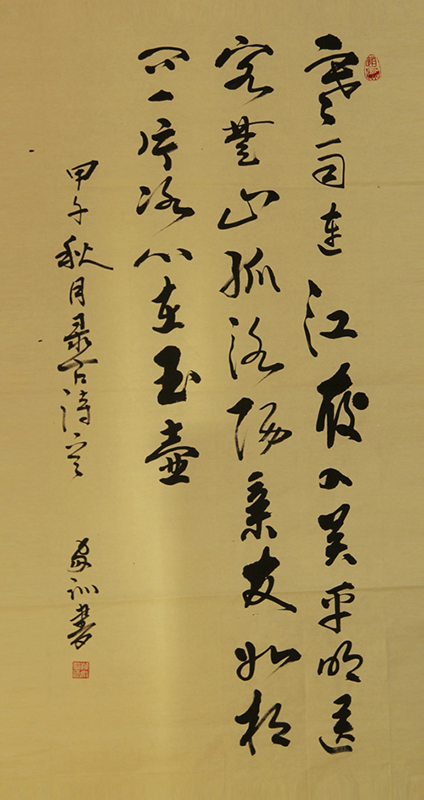 寒雨连江夜入吴平明送
客楚山孤洛阳亲友如相
问一片冰心在玉壶
甲午秋月录古诗
训书